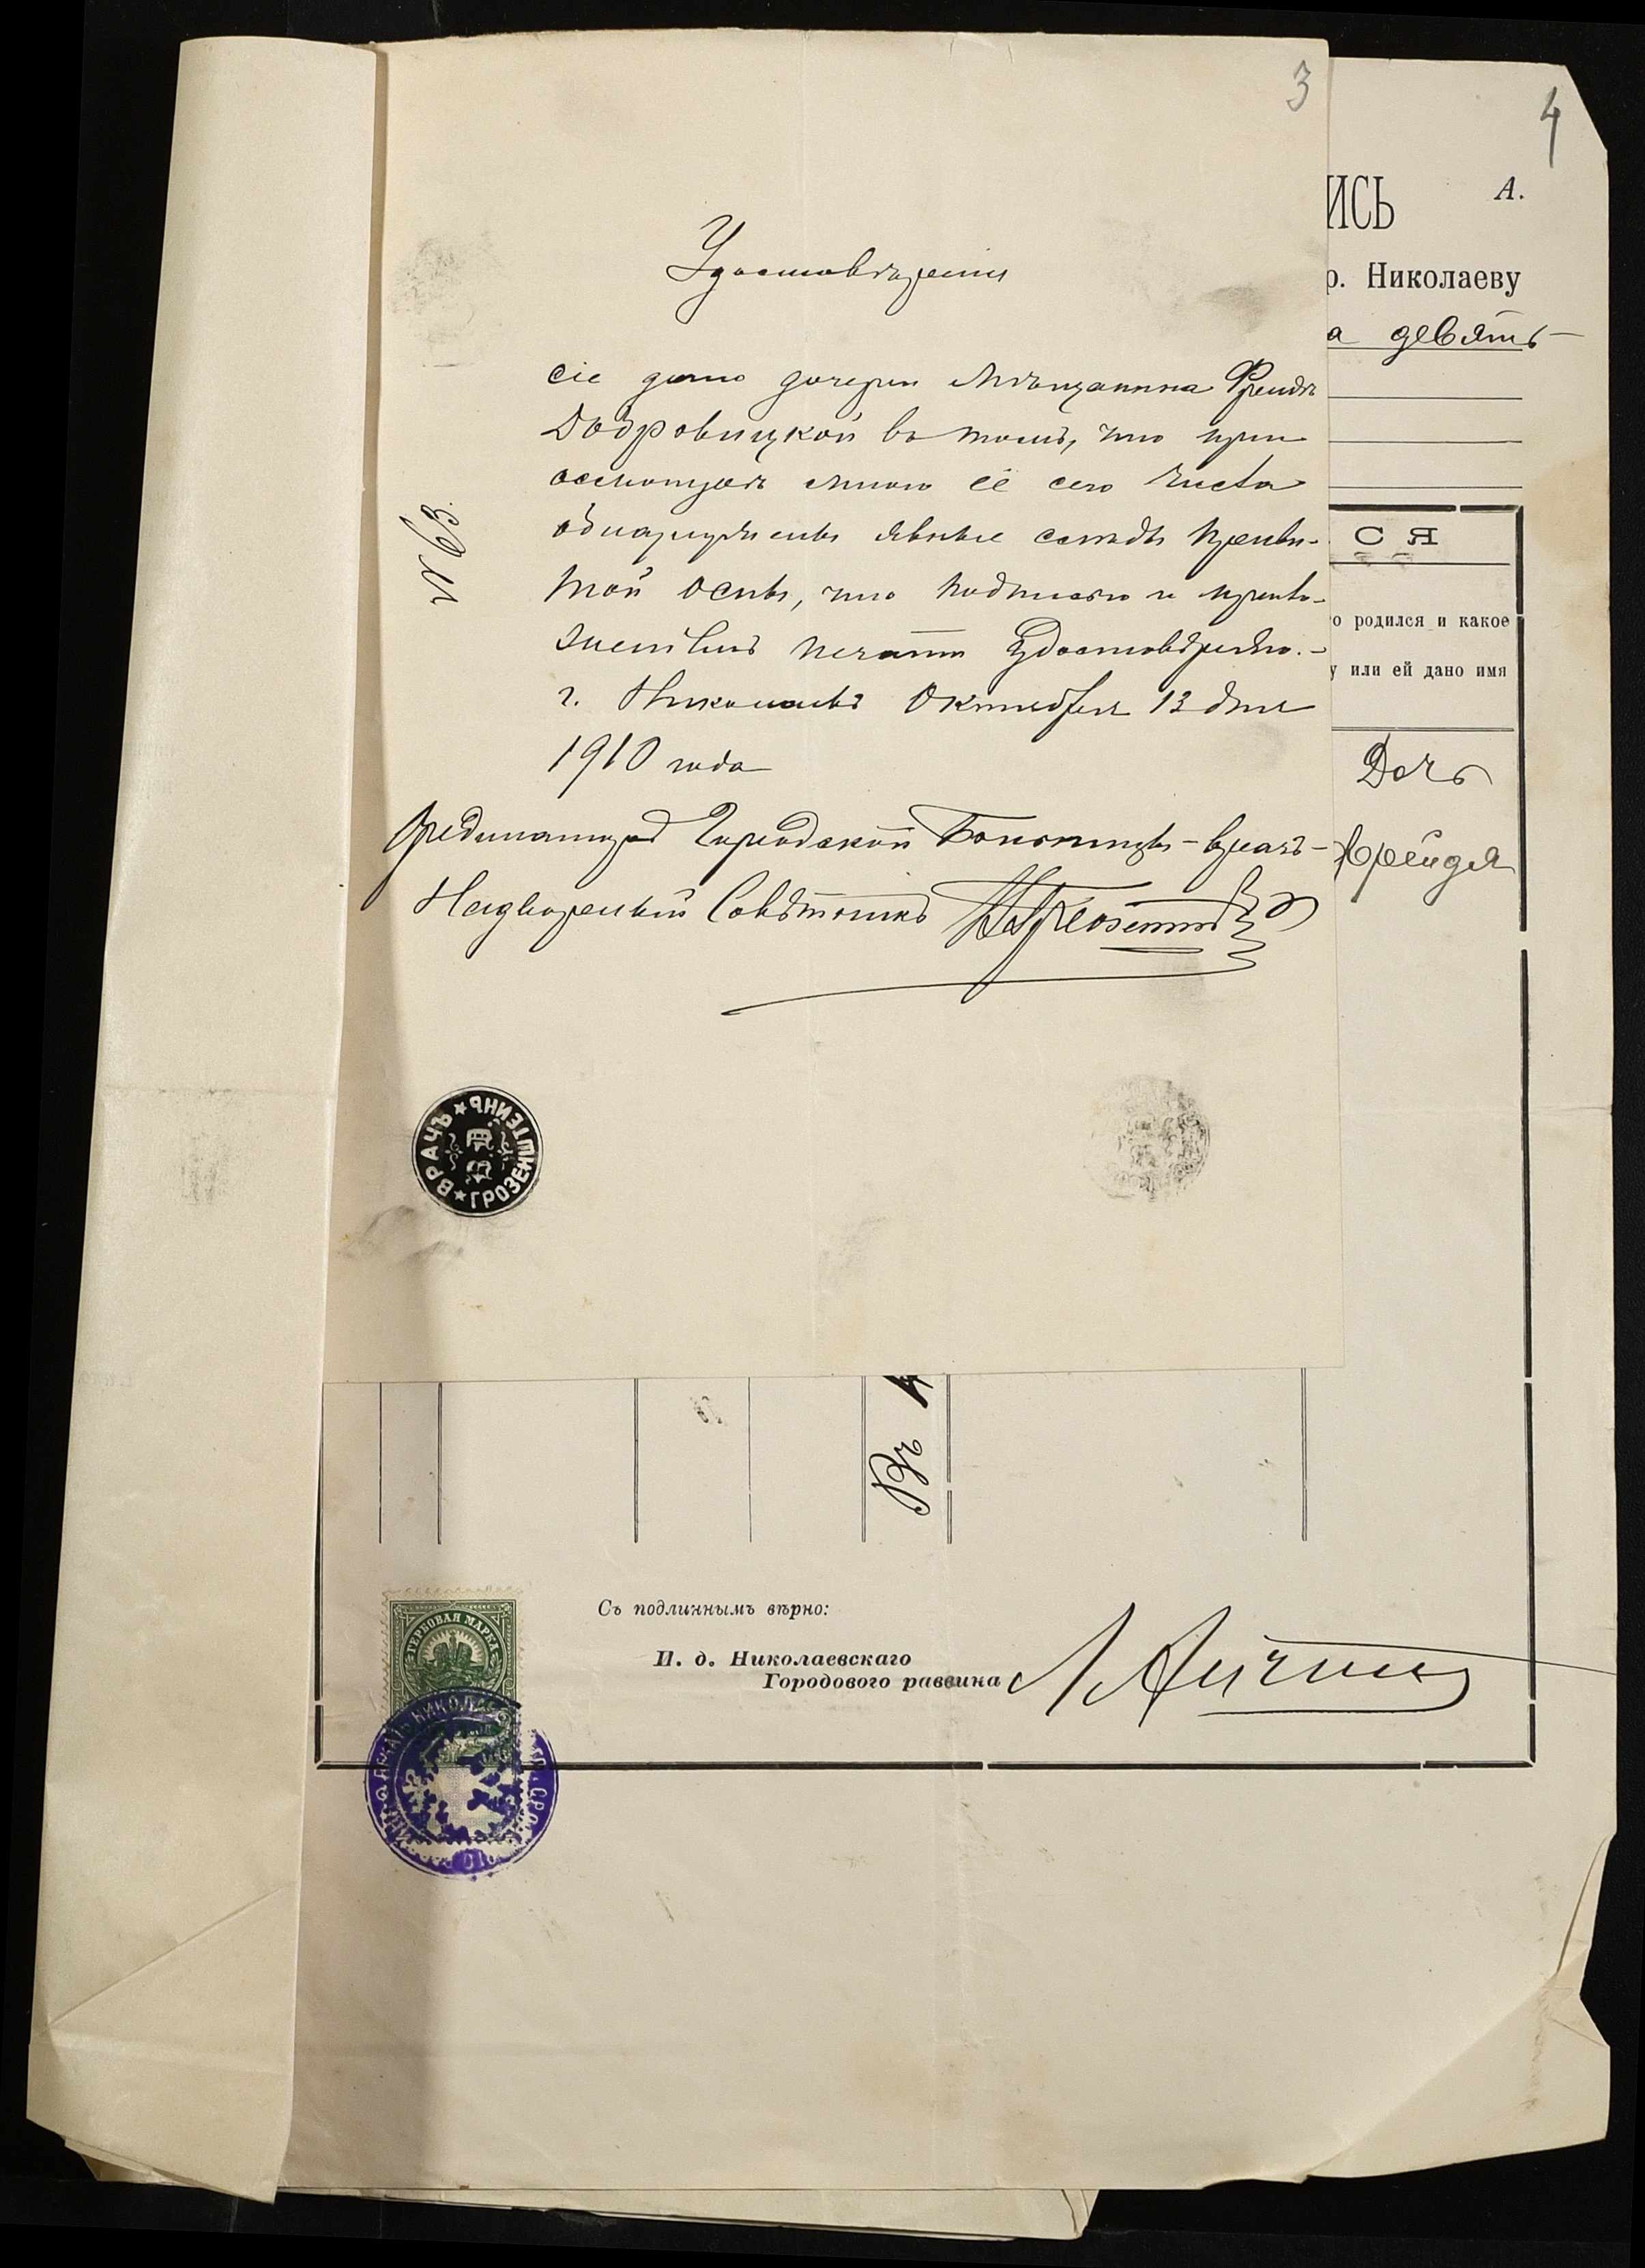 3
4
Удостовѣреніе
сіе дано дочери мѣщанина Фрейдѣ
Добровицкой въ томъ, что при
осмотрѣ мною ее сего числа
обнаружены явные слѣды приви-
той оспы, что подписью и прило-
женіемъ печати удостовѣряю.-
г. Николаевъ Октября 13 дня
1910 года
Ординаторъ Городской Больницы - врачъ -
Надворный Совѣтникъ
№ 63
ВРАЧЪ ГРОЗЕНШТЕЙНЪ
ИСЬ
А.
р. Николаеву
а девять
СЯ
о родился и какое
у или ей дано имя
Дочь
Фрейдя
Съ подлиннымъ вѣрно:
И. д. Николаевскаго
Городового раввина
ГЕРБОВАЯ МАРКА